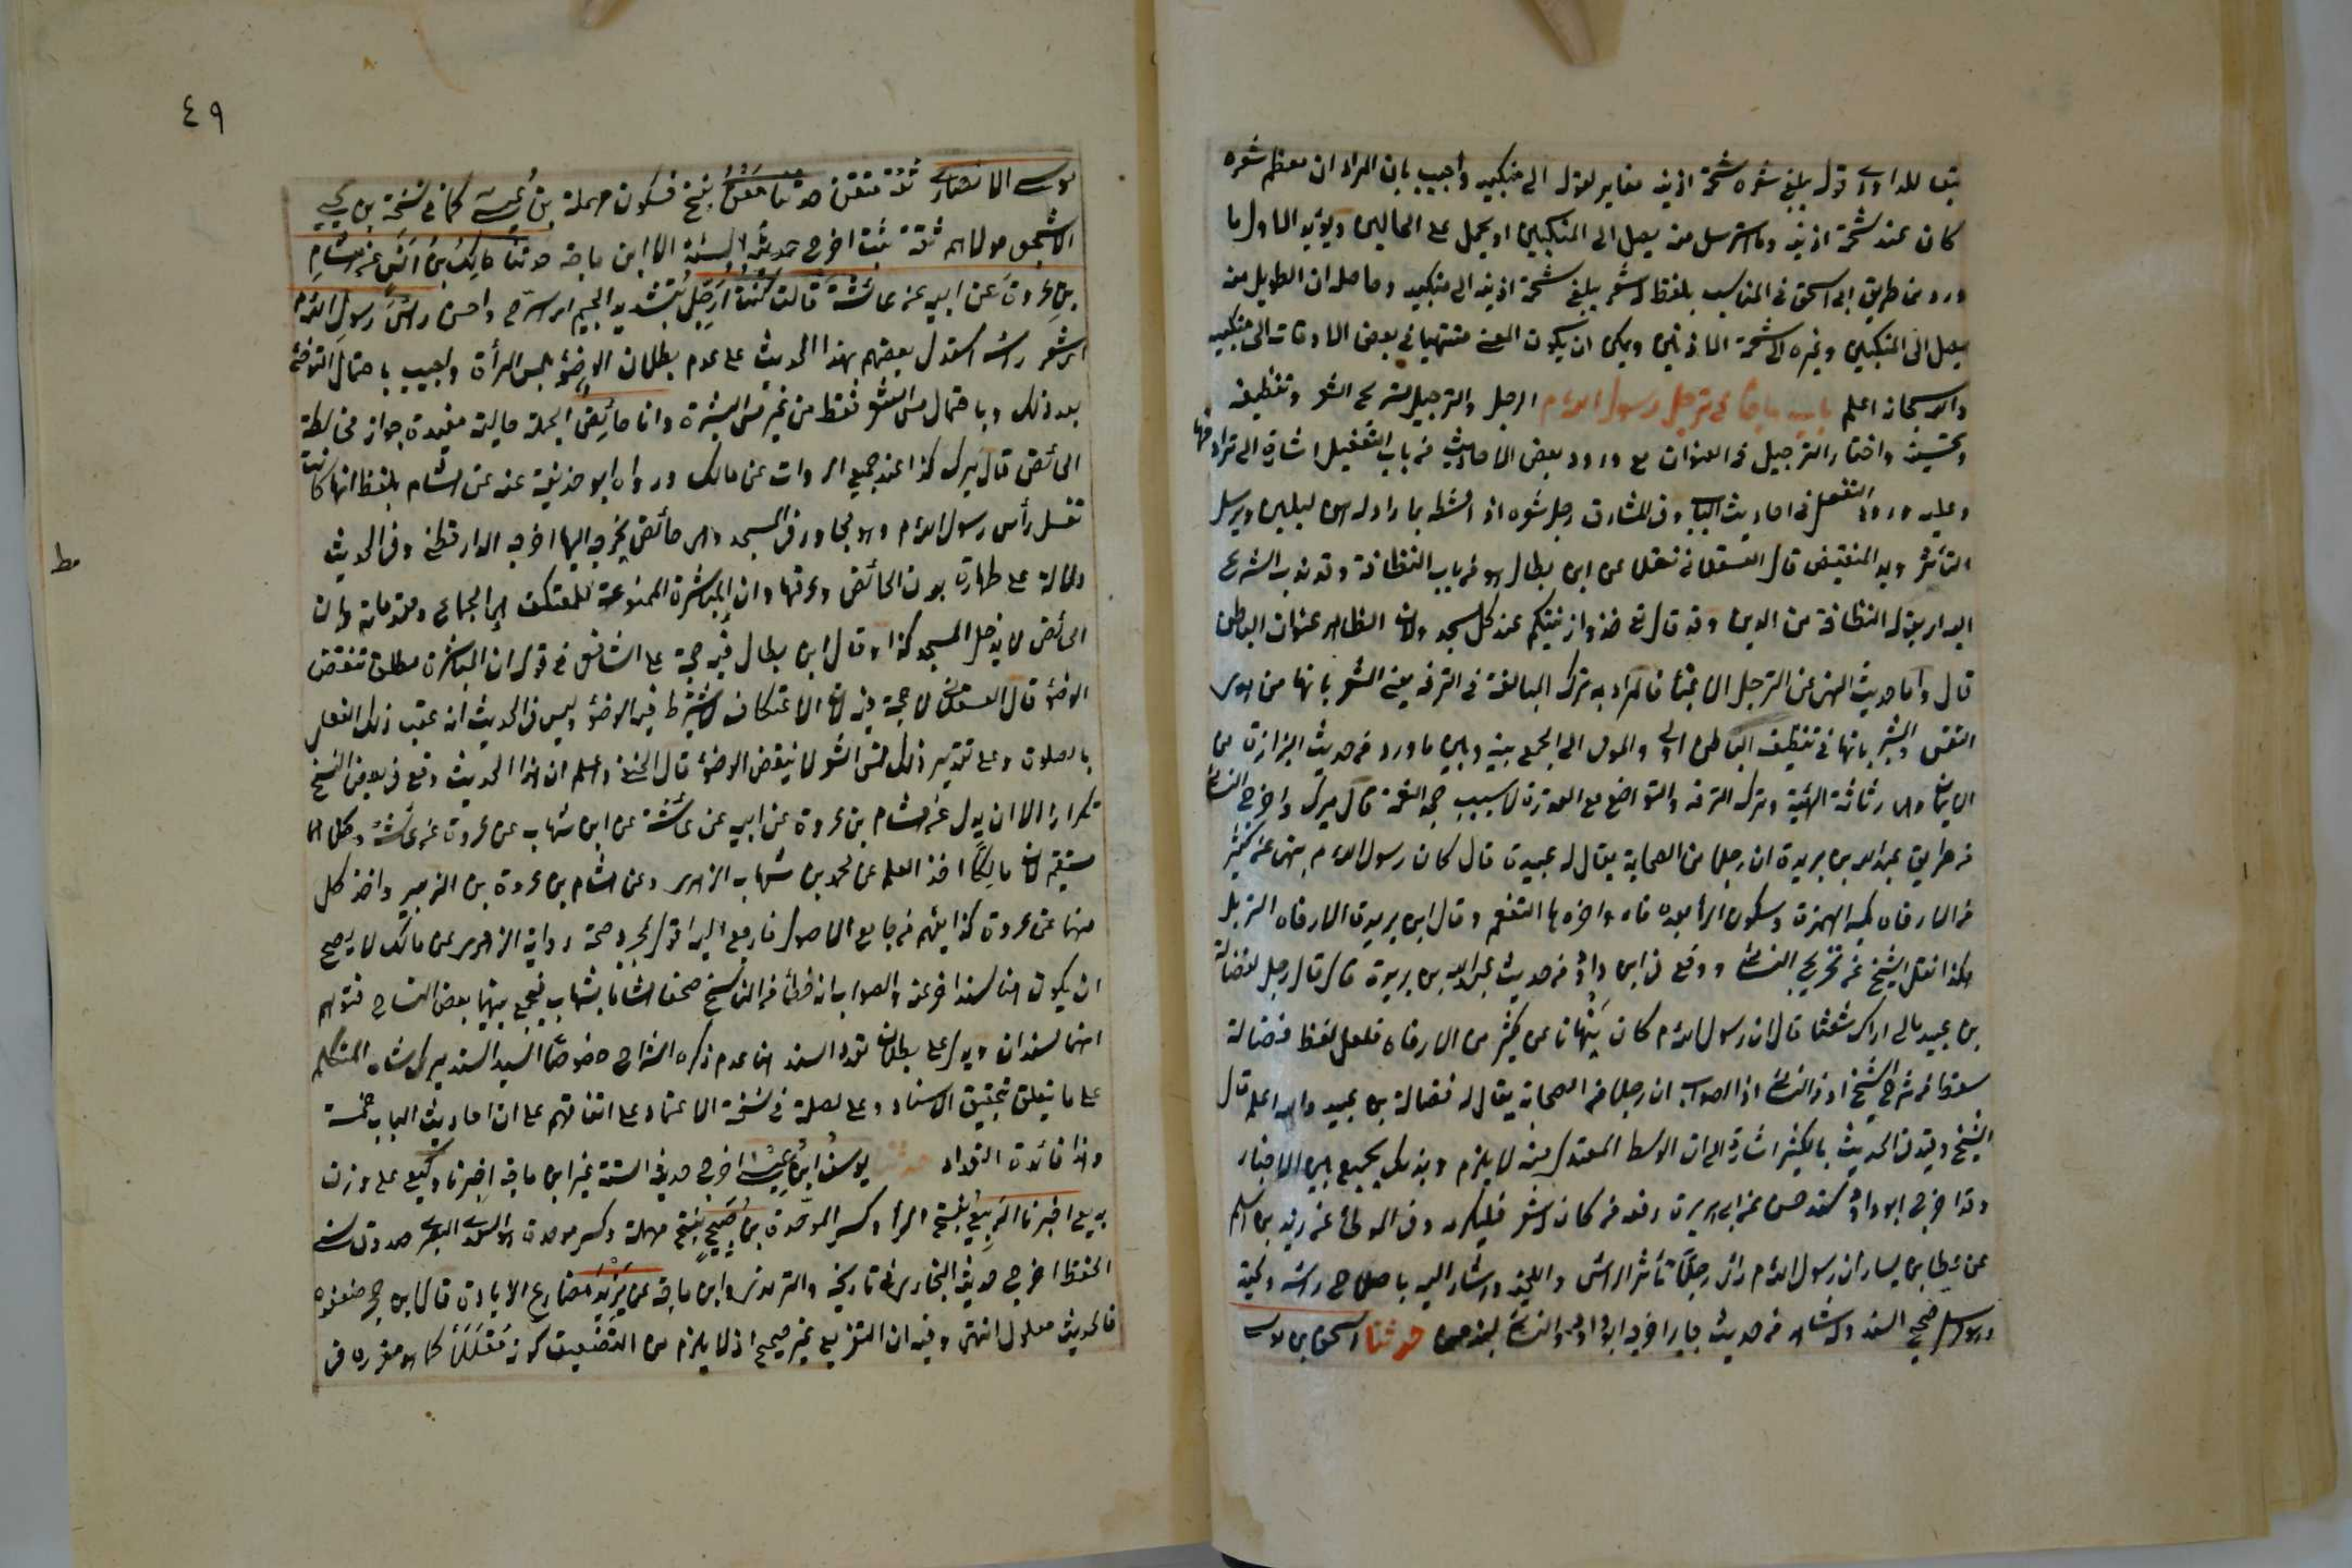 تبعا للداودي قوله يبلغ شعره شحمة اذنيه مغاير لقوله الى منكبيه واجيب بان المراد ان معظم شعره
كان عند شحمة اذنيه وما استرسل منه يصل الى المنكبين او يحمل على الحالين ويؤيد الاول ما
ورد من طريق ابى اسحق فى المناسب بلفظ له شعر يبلغ شحمة اذنيه الى منكبيه وحاصله ان الطويل منه
يصل الى المنكبين وغيره الى شحمة الاذنين ويمكن ان يكون المعنى منتهيا فى بعض الاوقات الى منكبيه
والله سبحانه اعلم باب ما جاء فى ترجل رسول الله م الرجل والترجيل تسريح الشعر وتنظيفه
وتحسينه واختار الترجيل فى العنوان مع ورود بعض الاحاديث من باب التفعيل اشارة الى ترادفهما
وعليه ورود التفعل فى احاديث الباب وفى المشارق رجل شعره اذا مشطه بماء او دهن ليلين ويرسل
الثائر ويمد المنقبض قال العسقلانى نقلا عن ابن بطال هو من باب النظافة وقد ندب الشرع
اليها بقوله النظافة من الدين وقد قال تع خذوا زينتكم عند كل مسجد ولان الظاهر عنوان الباطن
قال واما حديث النهى عن الترجل الا غبا فالمراد به ترك المبالغة فى الترفه
النفس بانها فى تنظيف الباطن اولى والموى الى الجمع بينه وبين ما ورد فى حديث البذاذة من
الايمان وهى رثاثة الهيئة وترك الترفه والتواضع مع القدرة لا بسبب جحد النعمة قال ميرك واخرج النسائى
من طريق عبد الله بن بريدة ان رجلا من الصحابة يقال له عبيد قال كان رسول الله م ينهى عن كثير
من الارفاه بكسر الهمزة وسكون الراء بعده فاء واخره هاء التنعم وقال ابن بريدة الارفاه الترجل
هكذا نقل الشيخ عن تخريج النسائى ووقع فى ابى داود من حديث عبد الله بن بريدة قال قال رجل لفضالة
بن عبيد مالى اراك شعثا قال ان رسول الله م كان ينهانا عن كثير من الارفاه فلعل لفظ فضالة
سقط من شرح الشيخ او من النسائى اذ الصواب ان رجلا من الصحابة يقال له فضالة بن عبيد والله اعلم قال
الشيخ وقيد فى الحديث بالكثير اشارة الى ان الوسط المعتدل منه لا يذم وبذلك يجمع بين الاخبار
وقد اخرج ابو داود بسند حسن عن ابى هريرة رفعه من كان له شعر فليكرمه وفى الموطأ عن زيد بن اسلم
عن عطاء بن يسار ان رسول الله م رأى رجلا ثائر الرأس واللحية واشار اليه باصلاح رأسه ولحيته
وهو مرسل صحيح السند وله شاهد من حديث جابر اخرجه ابو داود والنسائى بسند حسن حدثنا اسحق بن موسى
٤٩
موسى الانصارى ثقة متقن حدثنا معن بفتح فسكون مهملة بن عيسى كما فى نسخة بن يحيى
الاشجعى مولاهم ثقة ثبت اخرج حديثه الستة الا ابن ماجة حدثنا مالك بن انس عن هشام
بن عروة عن ابيه عن عائشة قالت كنت ارجل بتشديد الجيم اى اسرح واحسن رأس رسول الله م
اى شعر رأسه استدل بعضهم بهذا الحديث على عدم بطلان الوضوء بلمس المرأة واجيب باحتمال التوضئ
بعد ذلك وباحتمال مس الشعر فقط من غير مس البشرة وانا حائض الجملة حالية مفيدة جواز مخالطة
الحائض قال ميرك كذا عند جميع الروات عن مالك ورواه ابو حذيفة عنه عن هشام بلفظ انها كانت
تغسل رأس رسول الله م وهو مجاور فى المسجد وهى حائض يخرجه اليها اخرجه الدارقطنى وفى الحديث
دلالة على طهارة بدن الحائض وعرقها وان المباشرة الممنوعة للمعتكف هى الجماع ومقدماته وان
الحائض لا يدخل المسجد كذا وقال ابن بطال فيه حجة على الشافعى فى قوله ان المباشرة مطلقا تنقض
الوضوء قال العسقلانى لا حجة فيه لان الاعتكاف لا يشترط فيه الوضوء وليس فى الحديث انه عقب ذلك الفعل
بالصلوة وعلى تقدير ذلك فمس الشعر لا ينقض الوضوء قال الحنفى واعلم ان هذا الحديث وقع فى بعض النسخ
تكرارا الا ان بدل عن هشام بن عروة عن ابيه عن عائشة عن ابن شهاب عن عروة عن عائشة وكلاهما
مستقيم لان مالكا اخذ العلم عن محمد بن شهاب الزهرى وعن هشام بن عروة بن الزبير واخذ كل
منهما عن عروة كذا يفهم من جامع الاصول فارجع اليه اقول مجرد صحة رواية الزهرى عن مالك لا يصح
ان يكون هنا سندا اخر عنه والصواب انه خطأ من الناسخ صحف هشاما بشهاب فجمع بينهما بعض النساخ فتوهم
انهما سندان ويدل على بطلان تعدد السند هنا عدم ذكره الشراح خصوصا السيد السند ميرك شاه المتكلم
على ما يتعلق بتحقيق الاسناد وعلى اصله فى نسخة الاعتماد على اتفاقهم على ان احاديث الباب خمسة
وهذا فائدة التعداد حدثنا يوسف بن عيسى اخرج حديثه الستة غير ابن ماجة اخبرنا وكيع على وزن
بديع اخبرنا الربيع بفتح الراء وكسر الموحدة بن صبيح بفتح مهملة وكسر موحدة هو السعدى البصرى صدوق سيئ
الحفظ اخرج حديثه البخارى فى تاريخه والترمذى وابن ماجة عن يزيد مضارع الزيادة قال ابن حجر ضعفوه
فالحديث معلول انتهى وفيه ان التفريع غير صحيح اذ لا يلزم من التضعيف كونه معللا كما هو مقرر فى